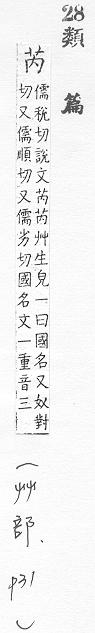 28
類
篇
芮
儒稅切說文芮芮艸生皃一曰國名又奴對
切又儒順切又儒劣切國名文一重音三
(艸部、p31)